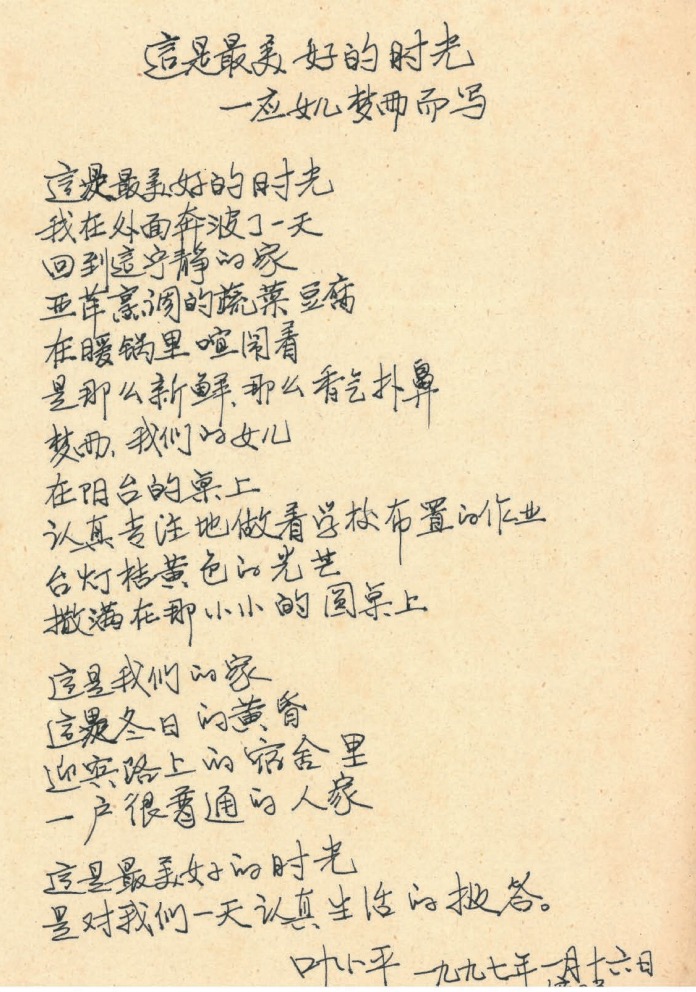 這是最美好的时光
一应女儿梦西而写
這是最美好的时光
我在外面奔波了一天
回到這宁静的家
亚萍烹调的蔬菜豆腐
在暖锅里喧闹着
是那么新鲜、那么香气扑鼻
梦西,我们的女儿
在阳台的桌上
认真专注地做着学校布置的作业
台灯桔黄色的光芒
撒满在那小小的圆桌上
這是我们的家
這是冬日的黄昏
迎宾路上的宿舍里
一户很普通的人家
這是最美好的时光
是对我们一天认真生活的报答。
叶小平 一九九七年一月十六日